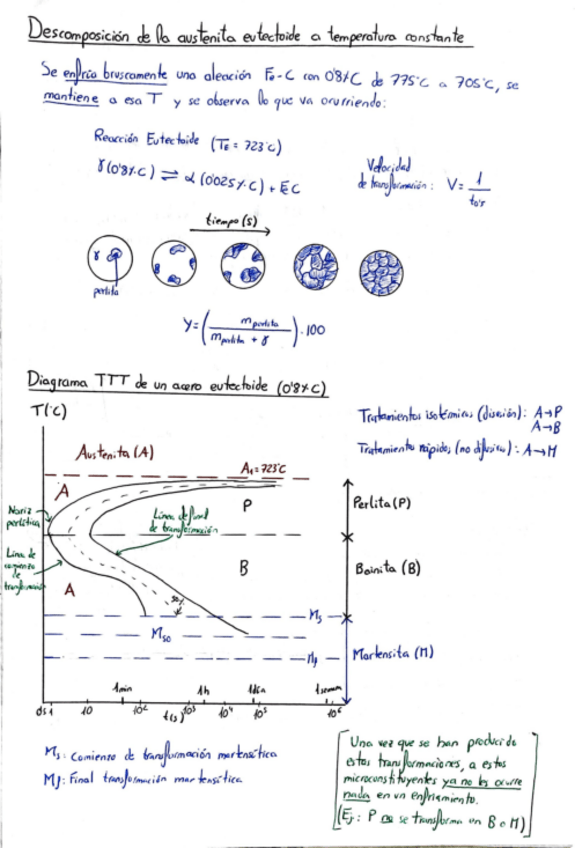 Descomposición de la austenita eutectoide a temperatura constante
Se enfría bruscamente una aleación Fe-C con 0'8%C de 775ºC a 705ºC, se
mantiene a esa T y se observa lo que va ocurriendo:
Reacción Eutectoide (TE = 723ºC)
γ(0'8%C) ⇌ α(0'025%C) + FeC
Velocidad
de transformación: V = 1/t0's
tiempo (s)
γ
perlita
Y = (m perlita / m perlita + γ) · 100
Diagrama TTT de un acero eutectoide (0'8%C)
T(ºC)
Tratamientos isotérmicos (difusión): A→P
A→B
Tratamientos rápidos (no difusivo): A→M
Austenita (A)
A1 = 723ºC
A
P
Perlita (P)
Nariz
perlítica
Línea de final
de transformación
Línea de
comienzo
de
transformación
B
Bainita (B)
A
50%
Ms
M50
Mf
Martensita (M)
1min
1h
1día
1semana
0'5 1
10
10²
t(s)
10³
10⁴
10⁵
10⁶
Ms: Comienzo de transformación martensítica
Mf: Final transformación martensítica
Una vez que se han producido
estas transformaciones, a estos
microconstituyentes ya no les ocurre
nada en un enfriamiento.
(Ej: P no se transforma en B o M)